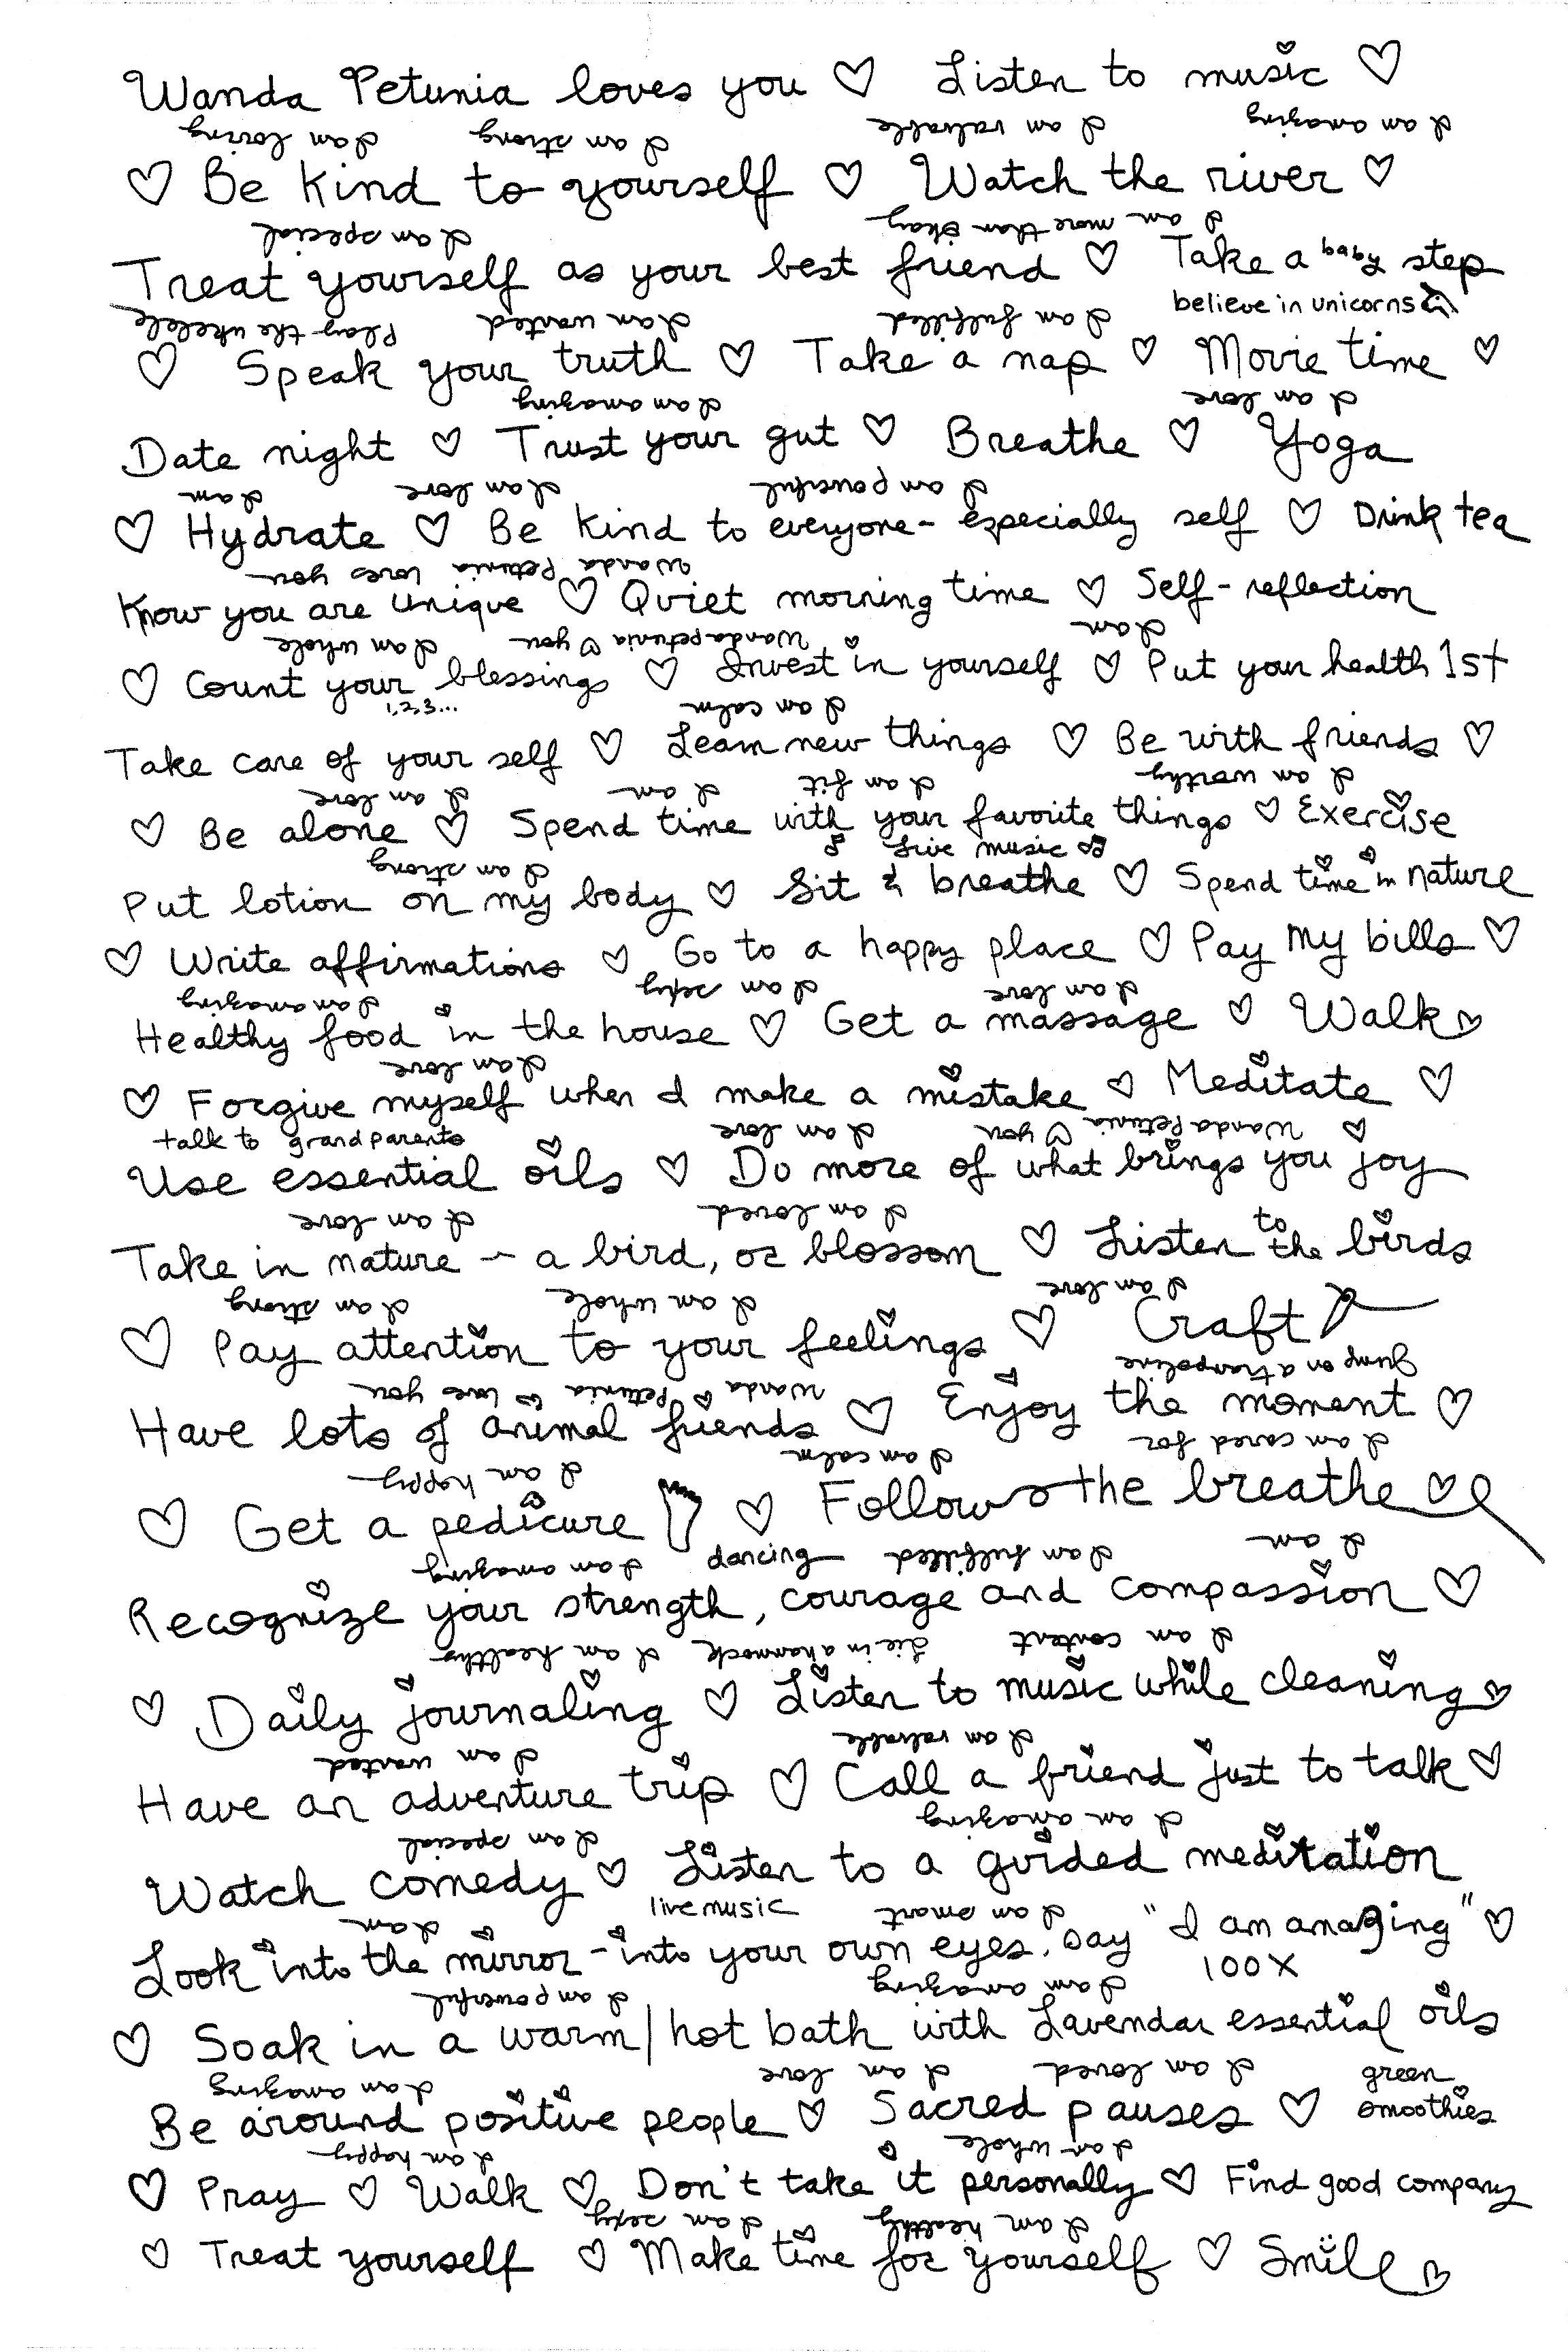 Wanda Petunia loves you ♡ Listen to music ♡
I am loving I am strong I am valuable I am amazing
♡ Be kind to yourself ♡ Watch the river ♡
I am special I am more than okay
Treat yourself as your best friend ♡ Take a baby step
believe in unicorns
Play the ukelele I am wanted I am fulfilled
♡ Speak your truth ♡ Take a nap ♡ Movie time ♡
I am amazing I am love
Date night ♡ Trust your gut ♡ Breathe ♡ Yoga
I am I am love I am powerful
♡ Hydrate ♡ Be kind to everyone - especially self ♡ Drink tea
Wanda Petunia loves you
Know you are unique ♡ Quiet morning time ♡ Self-reflection
I am whole Wanda petunia ♡ you I am
♡ Count your blessings ♡ Invest in yourself ♡ Put your health 1st
1,2,3... I am calm
Take care of your self ♡ Learn new things ♡ Be with friends ♡
I am love I am I am fit I am worthy
♡ Be alone ♡ Spend time with your favorite things ♡ Exercise
I am strong Live music
Put lotion on my body ♡ Sit & breathe ♡ Spend time in nature
♡ Write affirmations ♡ Go to a happy place ♡ Pay my bills ♡
I am amazing I am sexy I am love
Healthy food in the house ♡ Get a massage ♡ Walk ♡
I am love
♡ Forgive myself when I make a mistake ♡ Meditate ♡
talk to grandparents I am love Wanda Petunia ♡ you ♡
Use essential oils ♡ Do more of what brings you joy
I am love I am loved
Take in nature - a bird, or blossom ♡ Listen to the birds
I am strong I am whole I am love
♡ Pay attention to your feelings ♡ Craft
Wanda ♡ Petunia ♡ love you Jump on a trampoline
Have lots of animal friends ♡ Enjoy the moment ♡
I am happy I am calm I am cared for
♡ Get a pedicure ♡ Follow the breathe ♡
I am amazing dancing I am fulfilled I am
Recognize your strength, courage and compassion ♡
I am healthy Lie in a hammock I am content
♡ Daily journaling ♡ Listen to music while cleaning ♡
I am wanted I am valuable
Have an adventure trip ♡ Call a friend just to talk ♡
I am special I am amazing
Watch comedy ♡ Listen to a guided meditation
I am live music I am smart
Look into the mirror - into your own eyes. Say "I am amazing" ♡
100X
I am powerful I am amazing
♡ Soak in a warm/hot bath with Lavendar essential oils
I am amazing I am love I am loved
Be around positive people ♡ Sacred pauses ♡ green smoothies
I am happy I am whole
♡ Pray ♡ Walk ♡ Don't take it personally ♡ Find good company
I am sexy I am healthy
♡ Treat yourself ♡ Make time for yourself ♡ Smile ♡